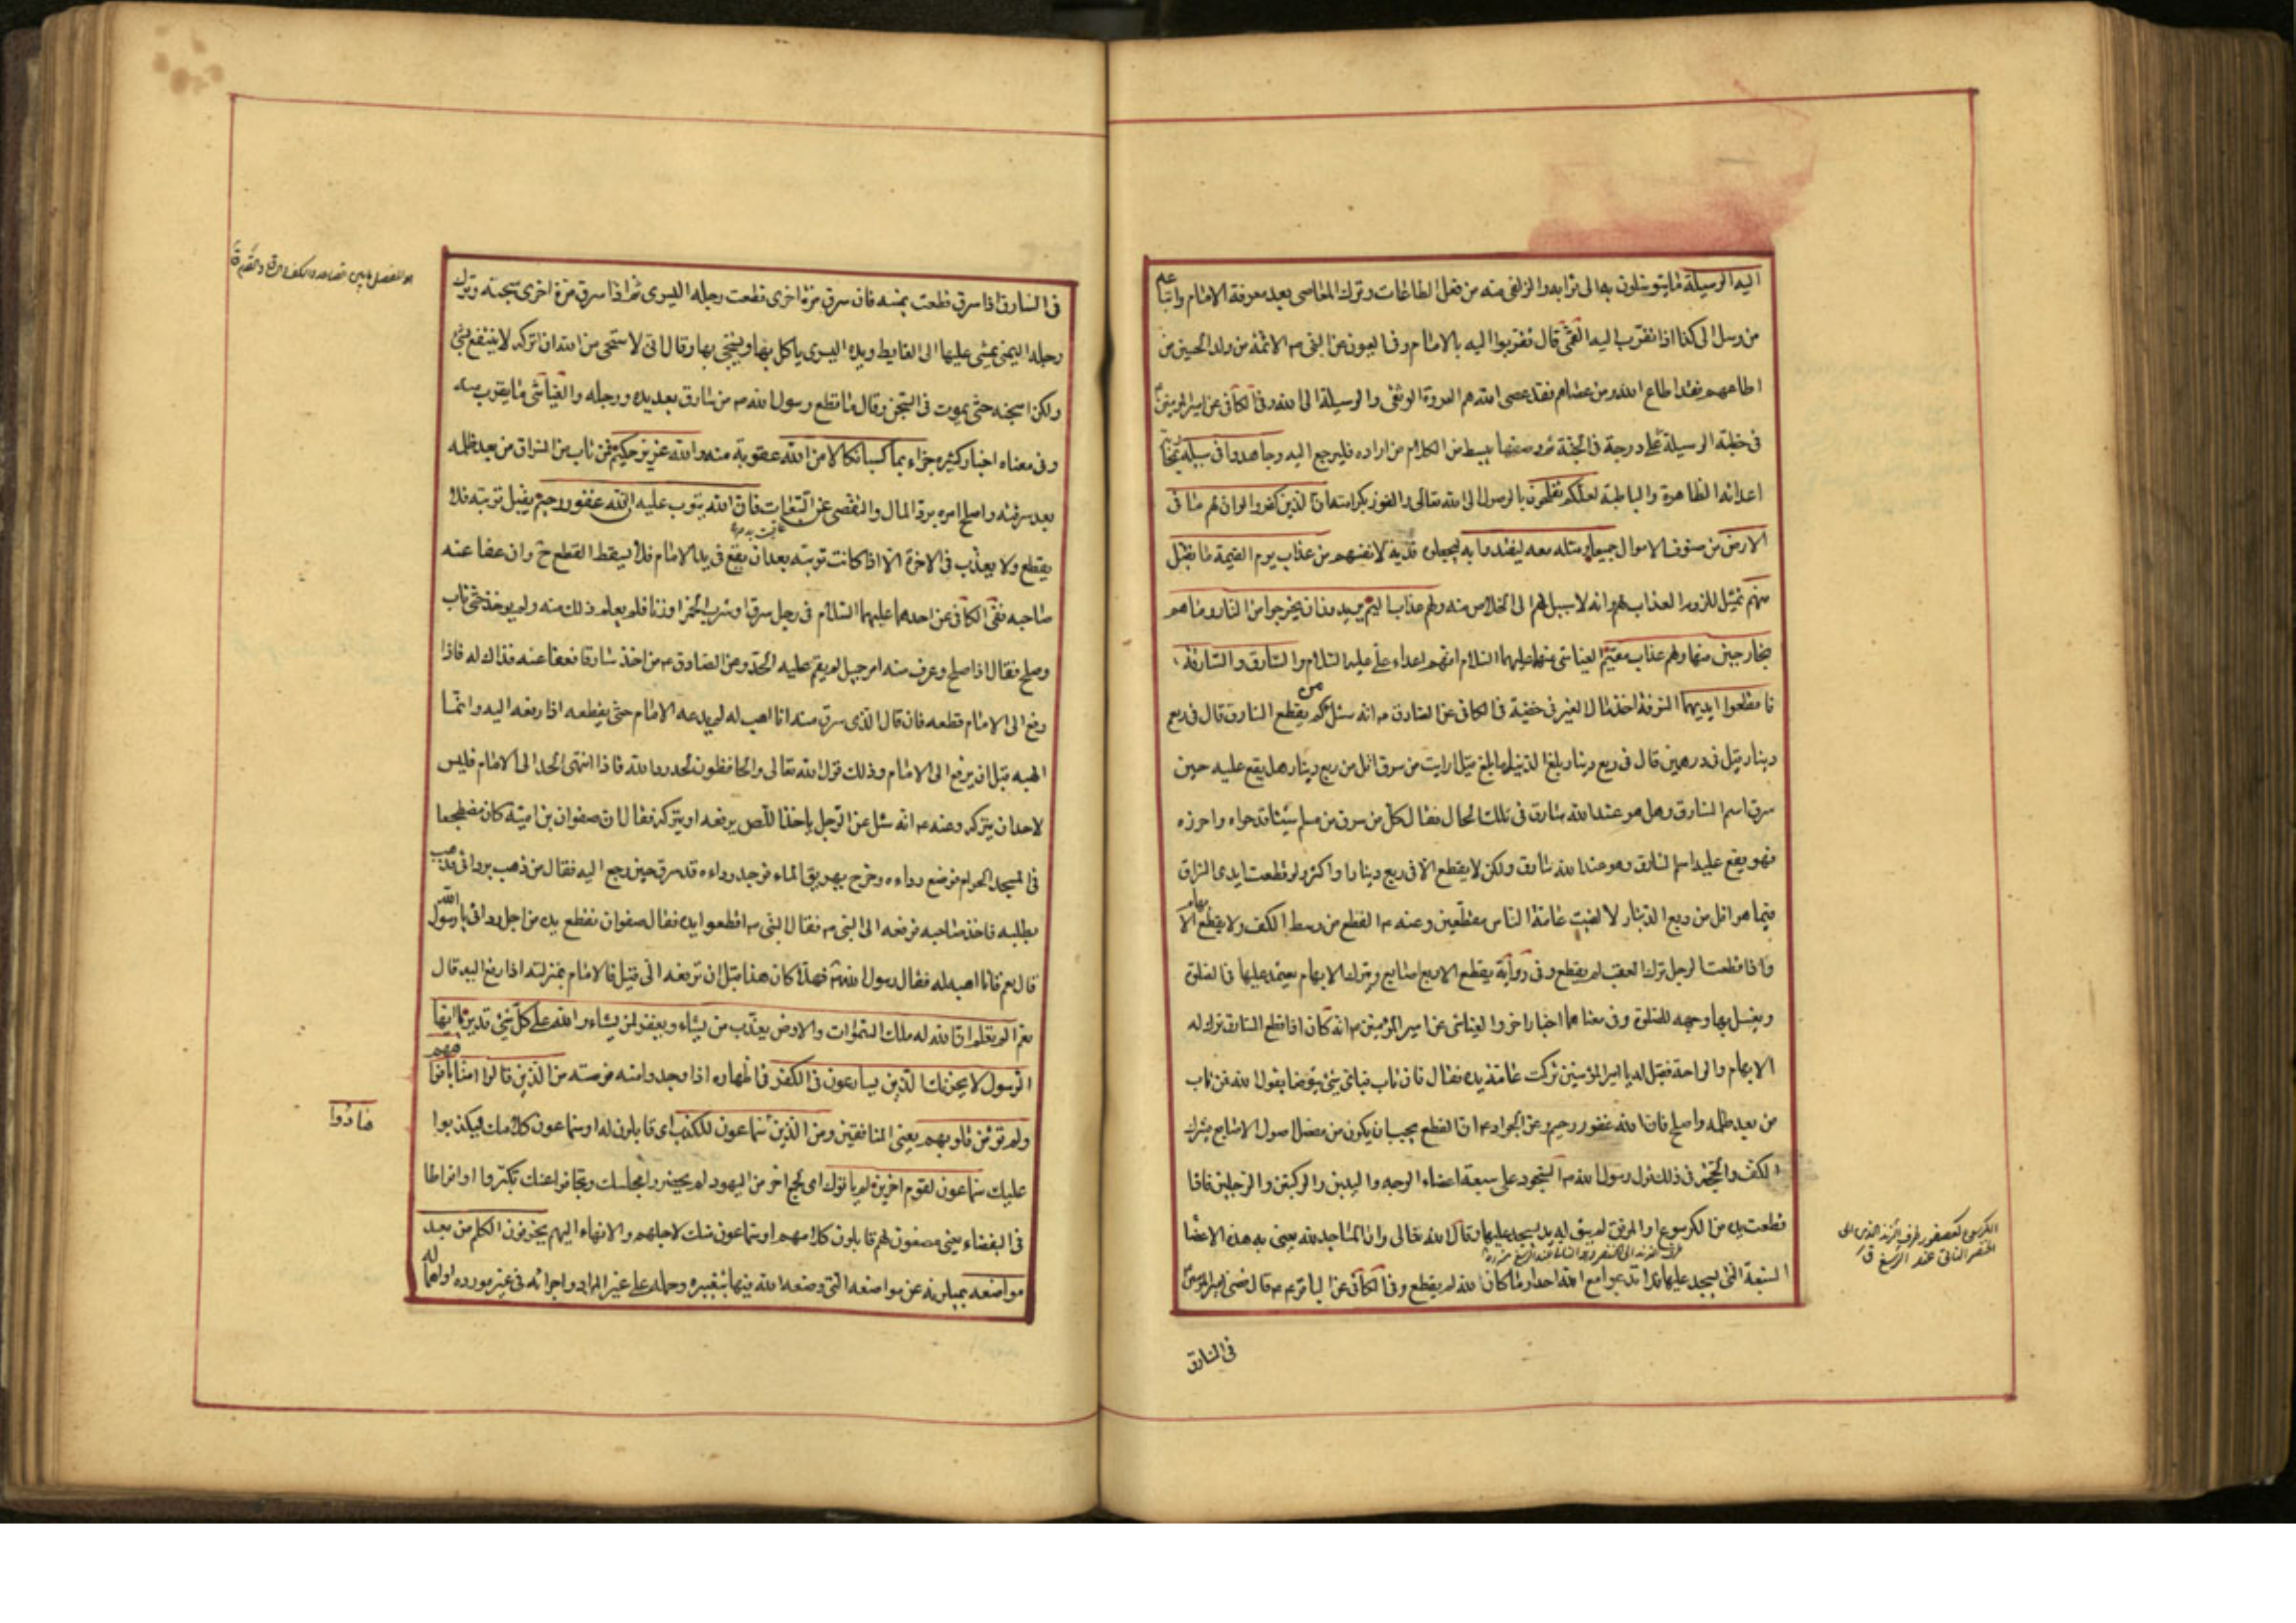 اليه الوسيلة ما يتوسلون به الى ثوابه والزلفى منه من فعل الطاعات وترك المعاصى بعد معرفة الامام واتباعه
من رسل الى كذا اذا تقرب اليه القمى قال تقربوا اليه بالامام وفى العيون عن النبى ص الائمة من ولد الحسين من
اطاعهم فقد اطاع الله ومن عصاهم فقد عصى الله هم العروة الوثقى والوسيلة الى الله وفى الكافى عن امير المؤمنين
فى خطبة الوسيلة على درجة فى الجنة ثم وصفها ببسط من الكلام من اراده فليرجع اليه وجاهدوا فى سبيله
اعدائه الظاهرة والباطنة لعلكم تفلحون بالوصول الى الله تعالى والفوز بكرامته ان الذين كفروا لو ان لهم ما فى
الارض من صنوف الاموال جميعا ومثله معه ليفتدوا به ليجعلوه فدية لانفسهم من عذاب يوم القيمة ما تقبل
منهم تمثيل للزوم العذاب لهم وانه لا سبيل لهم الى الخلاص منه ولهم عذاب اليم يريدون ان يخرجوا من النار وما هم
بخارجين منها ولهم عذاب مقيم العياشى عنهما عليهما السلام انهم اعداء على عليه السلام والسارق والسارقة
فاقطعوا ايديهما السرقة اخذ مال الغير فى خفية فى الكافى عن الصادق ع انه سئل فى كم يقطع السارق قال فى ربع
دينار قيل فى درهمين قال فى ربع دينار بلغ الدينار ما بلغ قيل ارايت من سرق اقل من ربع دينار هل يقع عليه حين
سرق اسم السارق وهل هو عند الله سارق فى تلك الحال فقال كل من سرق من مسلم شيئا قد حواه واحرزه
فهو يقع عليه اسم السارق وهو عند الله سارق ولكن لا يقطع الا فى ربع دينار او اكثر ولو قطعت ايدى السراق
فيما هو اقل من ربع الدينار لالفيت عامة الناس مقطعين وعنه ع القطع من وسط الكف ولا يقطع الابهام
واذا قطعت الرجل ترك العقب لم يقطع وفى رواية يقطع الاربع اصابع ويترك الابهام يعتمد عليها فى الصلوة
ويغسل بها وجهه للصلوة وفى معناهما اخبار اخر والعياشى عن امير المؤمنين ع انه كان اذا قطع السارق ترك له
الابهام والراحة فقيل له يا امير المؤمنين تركت عامة يده فقال فان تاب فباى شئ يتوضا يقول الله فمن تاب
من بعد ظلمه واصلح فان الله غفور رحيم وعن الجواد ع ان القطع يجب ان يكون من مفصل اصول الاصابع يترك
الكف والحجة فى ذلك قول رسول الله ص السجود على سبعة اعضاء الوجه واليدين والركبتين والرجلين فاذا
قطعت يده من الكرسوع او المرفق لم يبق له يد يسجد عليها وقال الله تعالى وان المساجد لله يعنى به هذه الاعضا
السبعة التى يسجد عليها فلا تدعوا مع الله احدا وما كان لله لم يقطع وفى الكافى عن الباقر ع قال قضى امير المؤمنين
فى السارق
الكرسوع كعصفور طرف الزند الذى يلى
الخنصر الناتئ عند الرسغ ق
فى السارق اذا سرق قطعت يمينه فان سرق مرة اخرى قطعت رجله اليسرى ثم اذا سرق مرة اخرى سجنه وترك
رجله اليمنى يمشى عليها الى الغايط ويده اليسرى ياكل بها ويستنجى بها وقال انى لاستحى من الله ان اتركه لا ينتفع بشئ
ولكن اسجنه حتى يموت فى السجن وقال ما قطع رسول الله ص من سارق بعد يده ورجله والعياشى ما يقرب منه
وفى معناه اخبار كثيرة جزاء بما كسبا نكالا من الله عقوبة منه والله عزيز حكيم فمن تاب من السراق من بعد ظلمه
بعد سرقته واصلح امره برد المال والتفصى عن التبعات فان الله يتوب عليه ان الله غفور رحيم يقبل توبته فلا
يقطع ولا يعذب فى الاخرة الا اذا كانت توبته بعد ان يقع فى يد الامام فلا يسقط القطع ح وان عفا عنه
صاحبه ففى الكافى عن احدهما عليهما السلام فى رجل سرق او شرب الخمر او زنا فلم يعلم ذلك منه ولم يوخذ حتى تاب
وصلح فقال اذا صلح وعرف منه امر جميل لم يقم عليه الحد وعن الصادق ع من اخذ سارقا فعفا عنه فذاك له فاذا
رفع الى الامام قطعه فان قال الذى سرق منه انا اهب له لم يدعه الامام حتى يقطعه اذا رفعه اليه وانما
الهبه قبل ان يرفع الى الامام وذلك قول الله تعالى والحافظون لحدود الله فاذا انتهى الحد الى الامام فليس
لاحد ان يتركه وعنه ع انه سئل عن الرجل ياخذ اللص يرفعه او يتركه فقال ان صفوان بن امية كان مضطجعا
فى المسجد الحرام فوضع رداءه وخرج يهريق الماء فوجد رداءه قد سرق حين رجع اليه فقال من ذهب بردائى فذهب
يطلبه فاخذ صاحبه فرفعه الى النبى ص فقال النبى ص اقطعوا يده فقال صفوان تقطع يده من اجل ردائى يا رسول الله
قال نعم قال فانا اهبه له فقال رسول الله ص فهلا كان هذا قبل ان ترفعه الى قيل فالامام بمنزلته اذا رفع اليه قال
نعم الم تعلم ان الله له ملك السموات والارض يعذب من يشاء ويغفر لمن يشاء والله على كل شئ قدير يا ايها
الرسول لا يحزنك الذين يسارعون فى الكفر فى اظهاره اذا وجدوا منه فرصته من الذين قالوا امنا بافواههم
ولم تؤمن قلوبهم يعنى المنافقين ومن الذين هادوا سماعون للكذب اى قابلون له او سماعون كلامك ليكذبوا
عليك سماعون لقوم اخرين لم ياتوك اى لجمع اخر من اليهود لم يحضروا مجلسك وتجافوا عنك تكبرا او افراطا
فى البغضاء يعنى مصغون لهم قابلون كلامهم او سماعون منك لاجلهم والانهاء اليهم يحرفون الكلم من بعد
مواضعه يميلونه عن مواضعه التى وضعه الله فيها بتغييره وحمله على غير المراد واجرائه فى غير مورده او اهماله
هادوا